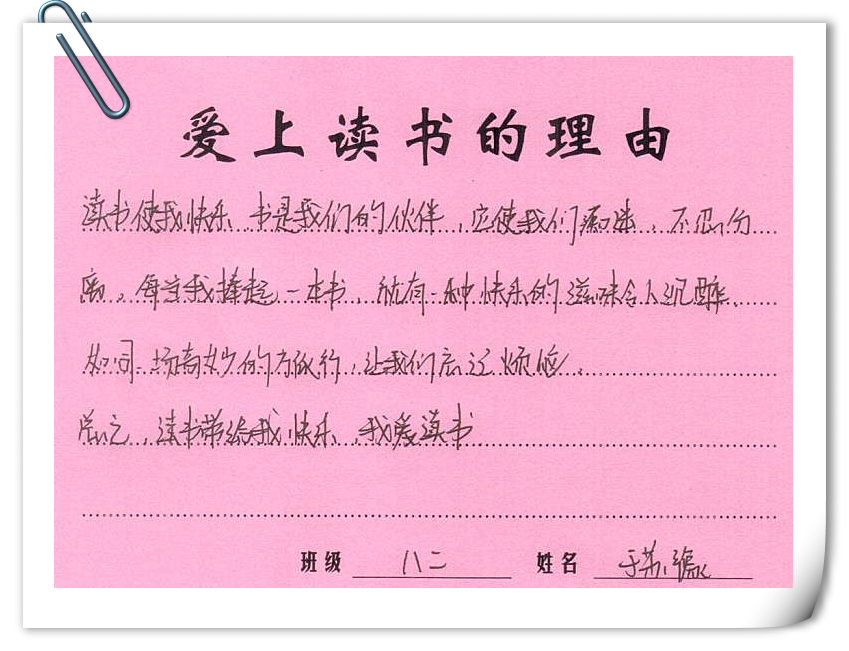 爱上读书的理由
读书使我快乐,书是我们的伙伴,应使我们痴迷,不忍分
离。每当我捧起一本书,就有一种快乐的滋味令人沉醉、
如同一场奇妙的旅行,让我们忘记烦恼。
总之,读书带给我快乐,我爱读书
班级 八二 姓名 于苏